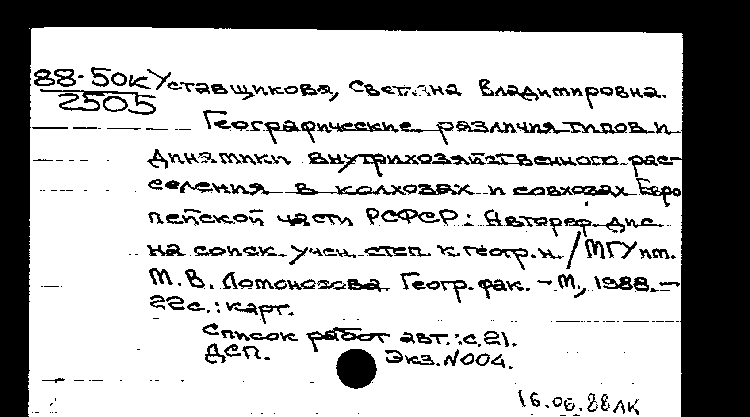 88-50к Уставщикова, Светлана Владимировна.
2505
Географические различия типов и
динамики внутрихозяйственного рас-
селения в колхозах и совхозах Евро
пейской части РСФСР: Автореф. дис.
на соиск. учен. степ. к. геогр. н. / МГУ им.
М. В. Ломоносова. Геогр. фак. - М., 1988. -
22с.: карт.
Список работ авт.: с. 21.
ДСП. Экз. N004.
16.06.88 ЛК